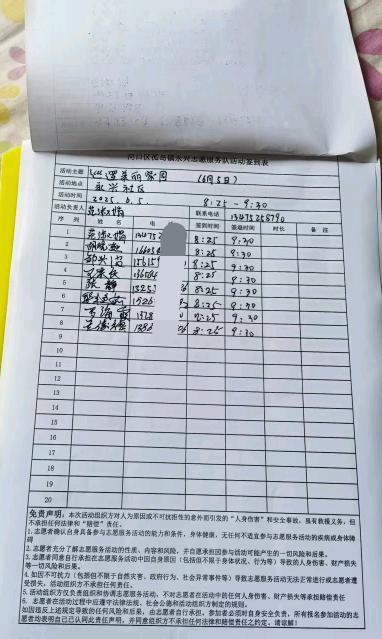 河口区孤岛镇永兴志愿服务队活动签到表
活动主题 巡逻美丽家园 (6月5日)
活动地点 永兴社区
活动时间 2025.6.5. 8:25-9:30
活动负责人 联系电话 13475258790
序列 姓名 电 签到时间 签退时间 时长 备注
1 13475 8:25 9:30
2 8:25 9:30
3 8:25 9:30
4 8:25 9:30
5 张静 8:25 9:30
6 8:25 9:30
7 8:25 9:30
8 8:25 9:30
9
10
11
12
13
14
15
16
17
18
19
20
免责声明:本次活动组织方对人为原因或不可抗拒性的意外而引发的“人身伤害”和安全事故,虽有救援义务,但
不承担任何法律和“赔偿”责任。
1.志愿者确认自身具备参与志愿服务活动的能力和条件,身体健康,无任何不适宜参与志愿服务活动的疾病或身体障
碍
2.志愿者充分了解志愿服务活动的性质、内容和风险,并自愿承担因参与活动可能产生的一切风险和后果。
3.志愿者同意自行承担在志愿服务活动中因自身原因(包括但不限于身体状况、行为等)导致的人身伤害、财产损失
等一切风险和后果。
4.如因不可抗力(包括但不限于自然灾害、政府行为、社会异常事件等)导致志愿服务活动无法正常进行或志愿者遭
受损失,活动组织方不承担任何法律责任。
5.活动组织方仅负责组织和协调志愿服务活动,不对志愿者在活动中的任何人身伤害、财产损失等承担赔偿责任
6.志愿者在活动过程中应遵守法律法规、社会公德和活动组织方制定的规则。
如因违反上述规定导致的任何风险和后果,由志愿者自行承担。参加者必须对自身安全负责,所有报名参加活动的志
愿者均表明自己已认同此责任声明,并同意组织方不承担任何法律和赔偿责任之约定。请谅解!